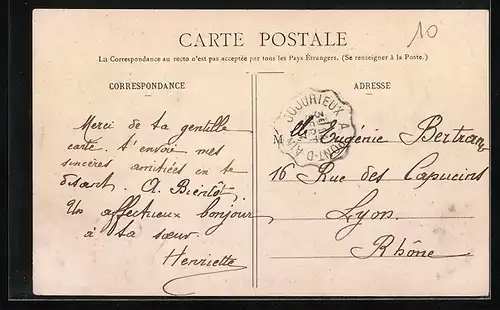 10
CARTE POSTALE
La Correspondance au recto n'est pas acceptée par tous les Pays Étrangers. (Se renseigner à la Poste.)
CORRESPONDANCE
Merci de ta gentille
carte. T'envoi mes
sincères amitiées en te
disant, A Bientôt,
Un affectueux bonjour
à ta sœur.
Henriette
ADRESSE
JUJURIEUX A
M lle Eugénie Bertran
16 Rue des Capucins
Lyon.
Rhône